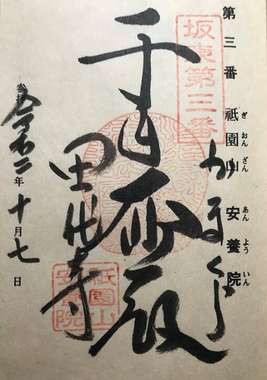 第三番 祇園山 安養院
ぎおんざん あんよういん
かまくら
坂東第三番
千手殿
田代寺
祇園山
安養院
令和二年十月七日